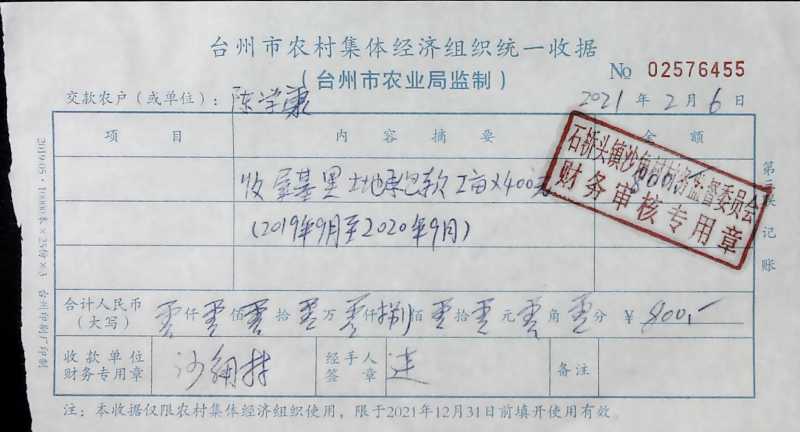 台州市农村集体经济组织统一收据
(台州市农业局监制)
No 02576455
交款农户(或单位): 陈学康
2021年2月6日
项目 内容摘要 金额
收 基里土地承包款2亩×400元
(2019年9月至2020年9月)
石桥头镇沙 村村务监督委员会
财务审核专用章
合计人民币
(大写)
零仟零佰零拾零万零仟捌佰零拾零元零角零分 ¥ 800.-
收款单位
财务专用章
沙 村
经手人
签章
备注
注:本收据仅限农村集体经济组织使用,限于2021年12月31日前填开使用有效。
第 联 记账